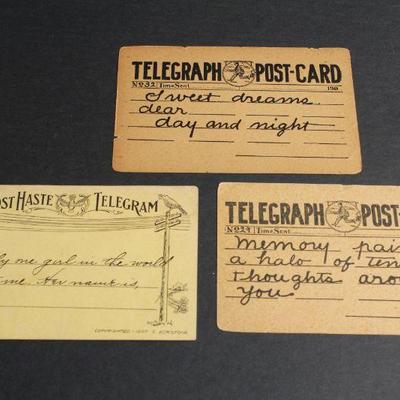 TELEGRAPH POST-CARD
No 32 Time Sent 190
Sweet dreams
dear
day and night
POST HASTE TELEGRAM
one girl in the world
me. Her name is,
COPYRIGHTED - 1907
TELEGRAPH POST-
No 29 Time Sent
Memory pai
a halo of ten
thoughts aro
You